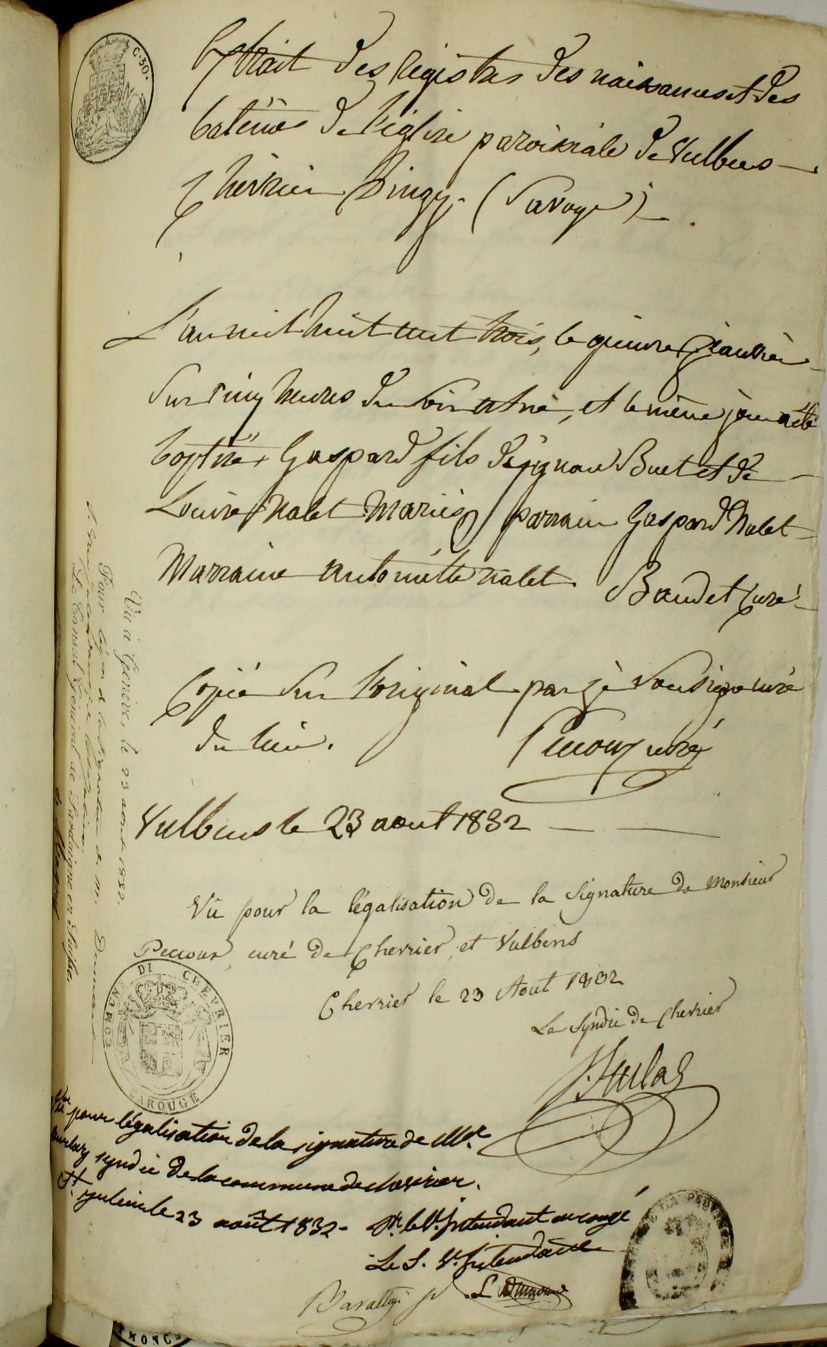 C. 50.
Extrait des registres des naissances et des
batêmes de l'église paroissiale de Vulbens
Chevrier Bingy. (Savoye)
L'an mil huit cent trois, le quinze janvier
sur cinq heures du soir est né, et le même jour a été
baptisé Gaspard fils de Buet et de
Louise Nalet mariés, parrain Gaspard Nalet
Marraine antoinette nalet. Baudet curé
Copié sur l'original par je soussigné curé
du lieu. Pecour curé
Vulbens le 23 aout 1832
Vu pour la légalisation de la signature de Monsieur
Peccour, curé de Chevrier, et Vulbens
Chevrier le 23 Aout 1832
Le Syndic de Chevrier
COMUNE DI CHEVRIER
CAROUGE
Vu pour légalisation de la signature de Mr
syndic de la commune de Chevrier.
St julien le 23 août 1832. Pr. le V. Intendant en congé
Le S. V. Intendant
Vu à Genève le 23 aout 1832.
Pour légalisation de la signature de M.
Le Consul Général de Sardaigne en Suisse,